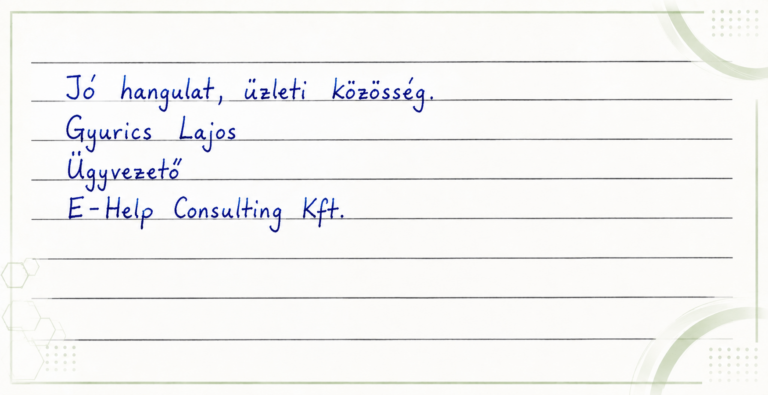 Jó hangulat, üzleti közösség.
Gyurics Lajos
Ügyvezető
E-Help Consulting Kft.